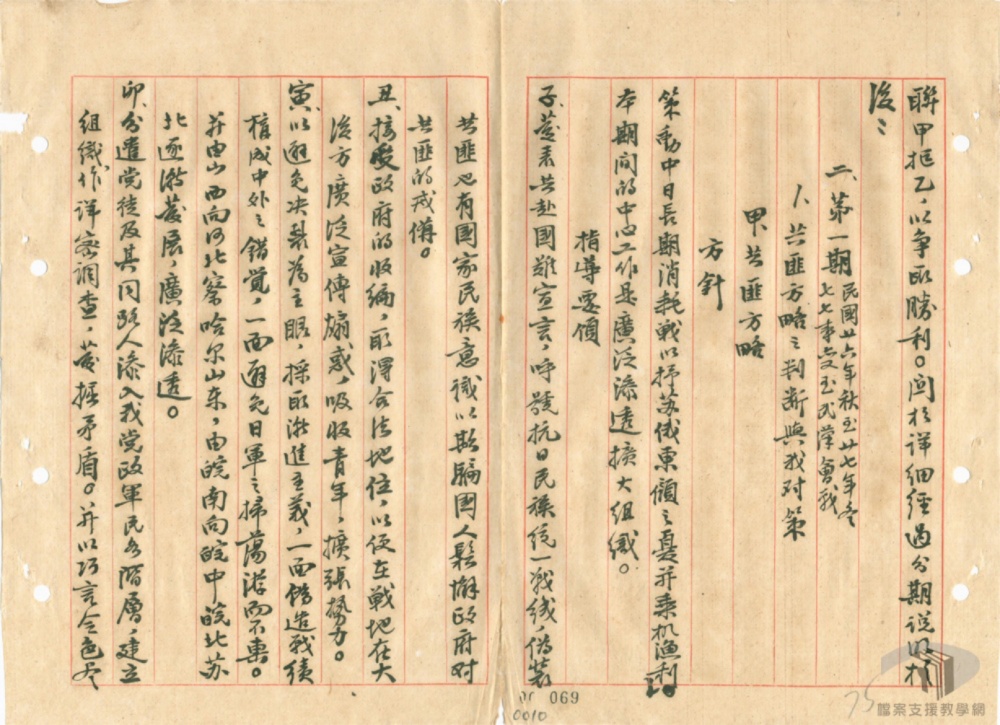 聯甲拒乙，以爭取勝利。関於詳細經過分期說明於
後：
二、第一期 民國廿六年秋至廿七年冬
七七事变至武漢會战
1. 共匪方略之判断與我对策
甲共匪方略
方針
策動中日長期消耗戰以掃苏俄東顧之憂并乘机渔利
本期間的中心工作是廣泛滲透擴大組織。
指導要領
子、發表共赴國難宣言，呼號抗日民族統一战线，偽裝
共匪也有國家民族意識以欺騙國人鬆懈政府对
共匪的戒備。
丑、接受政府的收編，取得合法地位，以便在戰地在大
後方廣泛宣傳煽惑，吸收青年，擴張势力。
寅、以避免决裂為主眼，採取漸進主義，一面偽造战績
植成中外之错覚，一面避免日軍之掃蕩游而不擊。
并由山西向河北察哈尔山东，由皖南向皖中皖北苏
北逐漸發展，廣泛滲透。
卯、分遣党徒及其同路人滲入我党政軍民各階層，建立
組織，作詳密調查，發掘矛盾。并以巧言令色尽
069
0010
75
檔案支援教學網